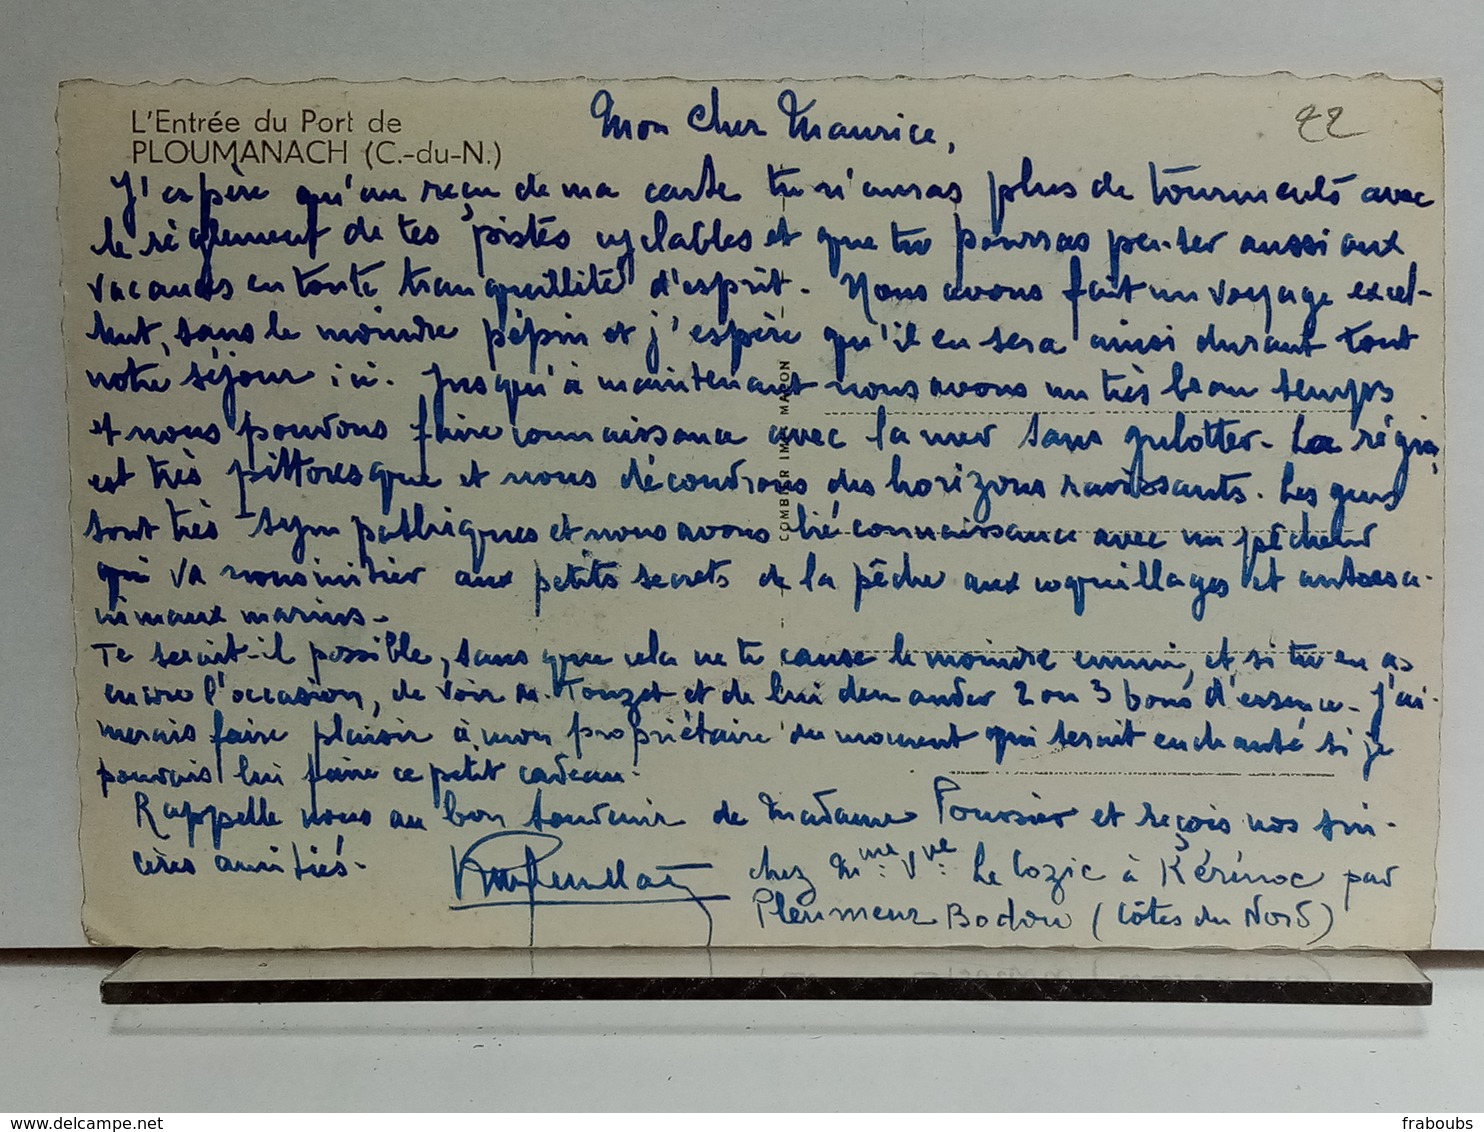 L'Entrée du Port de
PLOUMANACH (C.-du-N.)
22
Mon cher Maurice,
J'espère qu'au reçu de ma carte tu n'auras plus de tourments avec
le règlement de tes pistes cyclables et que tu pourras penser aussi aux
vacances en toute tranquillité d'esprit. Nous avons fait un voyage excel-
lent, sans le moindre pépin et j'espère qu'il en sera ainsi durant tout
notre séjour ici. Jusqu'à maintenant nous avons un très beau temps
et nous pouvons faire connaissance avec la mer sans grelotter. La région
est très pittoresque et nous découvrons des horizons ravissants. Les gens
sont très sympathiques et nous avons lié connaissance avec un pêcheur
qui va nous initier aux petits secrets de la pêche aux coquillages et autres a-
nimaux marins.
Te serait-il possible, sans que cela ne te cause le moindre ennui, et si tu en as
encore l'occasion, de voir M. Kouzet et de lui demander 2 ou 3 bons d'essence. J'ai-
merais faire plaisir à mon propriétaire du moment qui serait enchanté si je
pouvais lui faire ce petit cadeau.
Rappelle nous au bon souvenir de Madame Poussier et reçois nos sin-
cères amitiés.
chez Mme Vve Le Cozic à Kérénoc par
Pleumeur Bodou (Côtes du Nord)
COMBIER IMP. MACON
delcampe.net
fraboubs